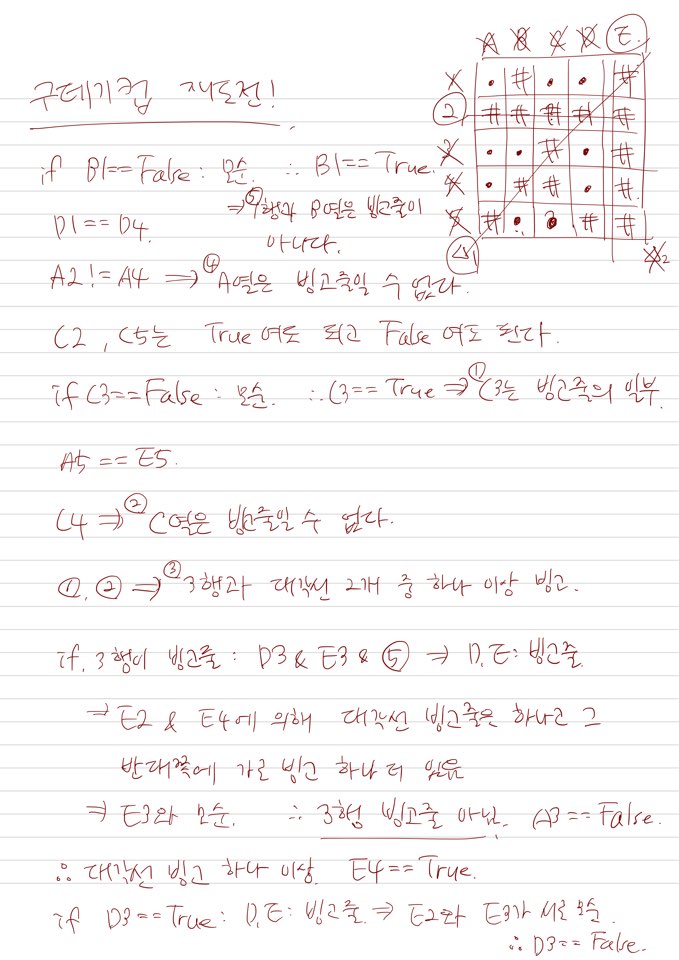 A B C D E
1
2
3
4
5
△1
△2
구데기컵 재도전!
if B1==False : 모순. ∴ B1==True.
D1==D4.
⇒ ⑤1행과 B열은 빙고줄이
아니다.
A2!=A4 ⇒ ④A열은 빙고줄일 수 없다.
C2, C5는 True여도 되고 False여도 된다.
if C3==False : 모순. ∴ C3==True ⇒ ①C3는 빙고줄의 일부
A5==E5.
C4 ⇒ ②C열은 빙고줄일 수 없다.
①, ② ⇒ ③3행과 대각선 2개 중 하나 이상 빙고.
if, 3행이 빙고줄 : D3 & E3 & ⑤ ⇒ D, E : 빙고줄
⇒ E2 & E4에 의해 대각선 빙고줄은 하나고 그
반대쪽에 가로 빙고 하나 더 있음
⇒ E3와 모순. ∴ 3행 빙고줄 아님. A3==False.
∴ 대각선 빙고 하나 이상. E4==True.
if D3==True : D, E : 빙고줄. ⇒ E2와 E3가 서로 모순.
∴ D3==False.